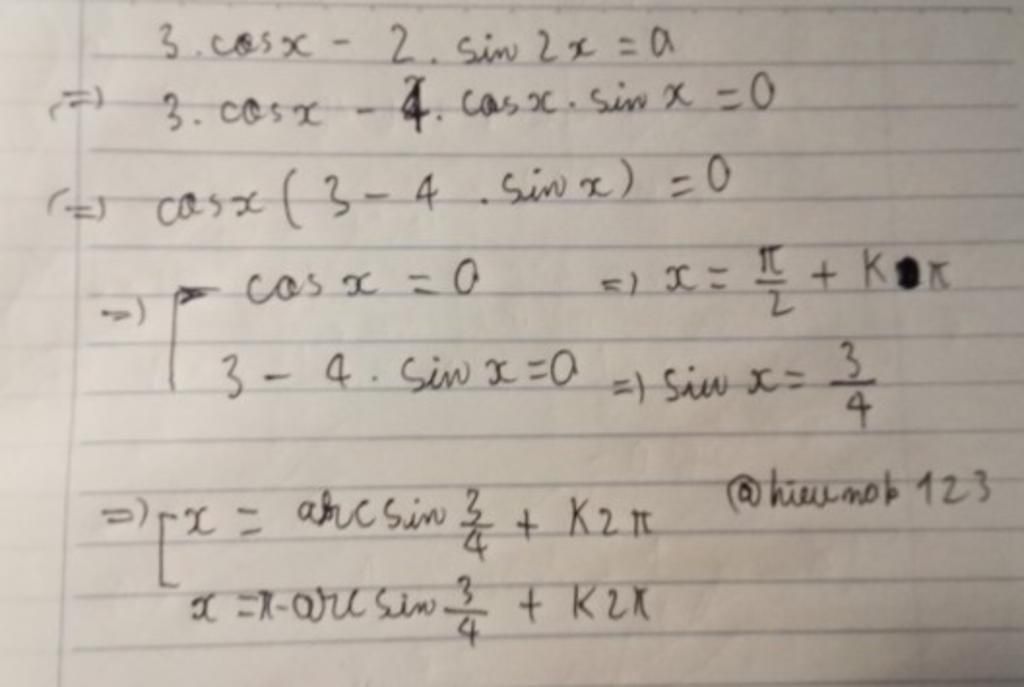 3.cosx - 2.sin2x = 0
=> 3.cosx - 4.cosx.sinx = 0
(=) cosx(3 - 4.sinx) = 0
=> [ cosx = 0 => x = π/2 + Kπ
3 - 4.sinx = 0 => sinx = 3/4
@hieunob123
=> [ x = arcsin 3/4 + K2π
x = π - arcsin 3/4 + K2π